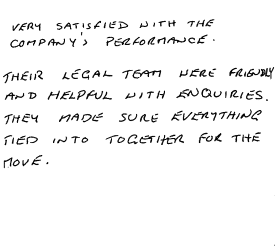 VERY SATISFIED WITH THE
COMPANY'S PERFORMANCE.
THEIR LEGAL TEAM WERE FRIENDLY
AND HELPFUL WITH ENQUIRIES.
THEY MADE SURE EVERYTHING
TIED INTO TOGETHER FOR THE
MOVE.